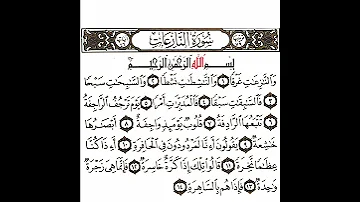 سُورَةُ النَّازِعَاتِ
بِسْمِ اللَّهِ الرَّحْمَٰنِ الرَّحِيمِ
وَالنَّازِعَاتِ غَرْقًا ﴿١﴾ وَالنَّاشِطَاتِ نَشْطًا ﴿٢﴾ وَالسَّابِحَاتِ سَبْحًا
﴿٣﴾ فَالسَّابِقَاتِ سَبْقًا ﴿٤﴾ فَالْمُدَبِّرَاتِ أَمْرًا ﴿٥﴾ يَوْمَ تَرْجُفُ الرَّاجِفَةُ
﴿٦﴾ تَتْبَعُهَا الرَّادِفَةُ ﴿٧﴾ قُلُوبٌ يَوْمَئِذٍ وَاجِفَةٌ ﴿٨﴾ أَبْصَارُهَا
خَاشِعَةٌ ﴿٩﴾ يَقُولُونَ أَءِنَّا لَمَرْدُودُونَ فِي الْحَافِرَةِ ﴿١٠﴾ أَءِذَا كُنَّا
عِظَامًا نَّخِرَةً ﴿١١﴾ قَالُوا تِلْكَ إِذًا كَرَّةٌ خَاسِرَةٌ ﴿١٢﴾ فَإِنَّمَا هِيَ زَجْرَةٌ
وَاحِدَةٌ ﴿١٣﴾ فَإِذَا هُم بِالسَّاهِرَةِ ﴿١٤﴾